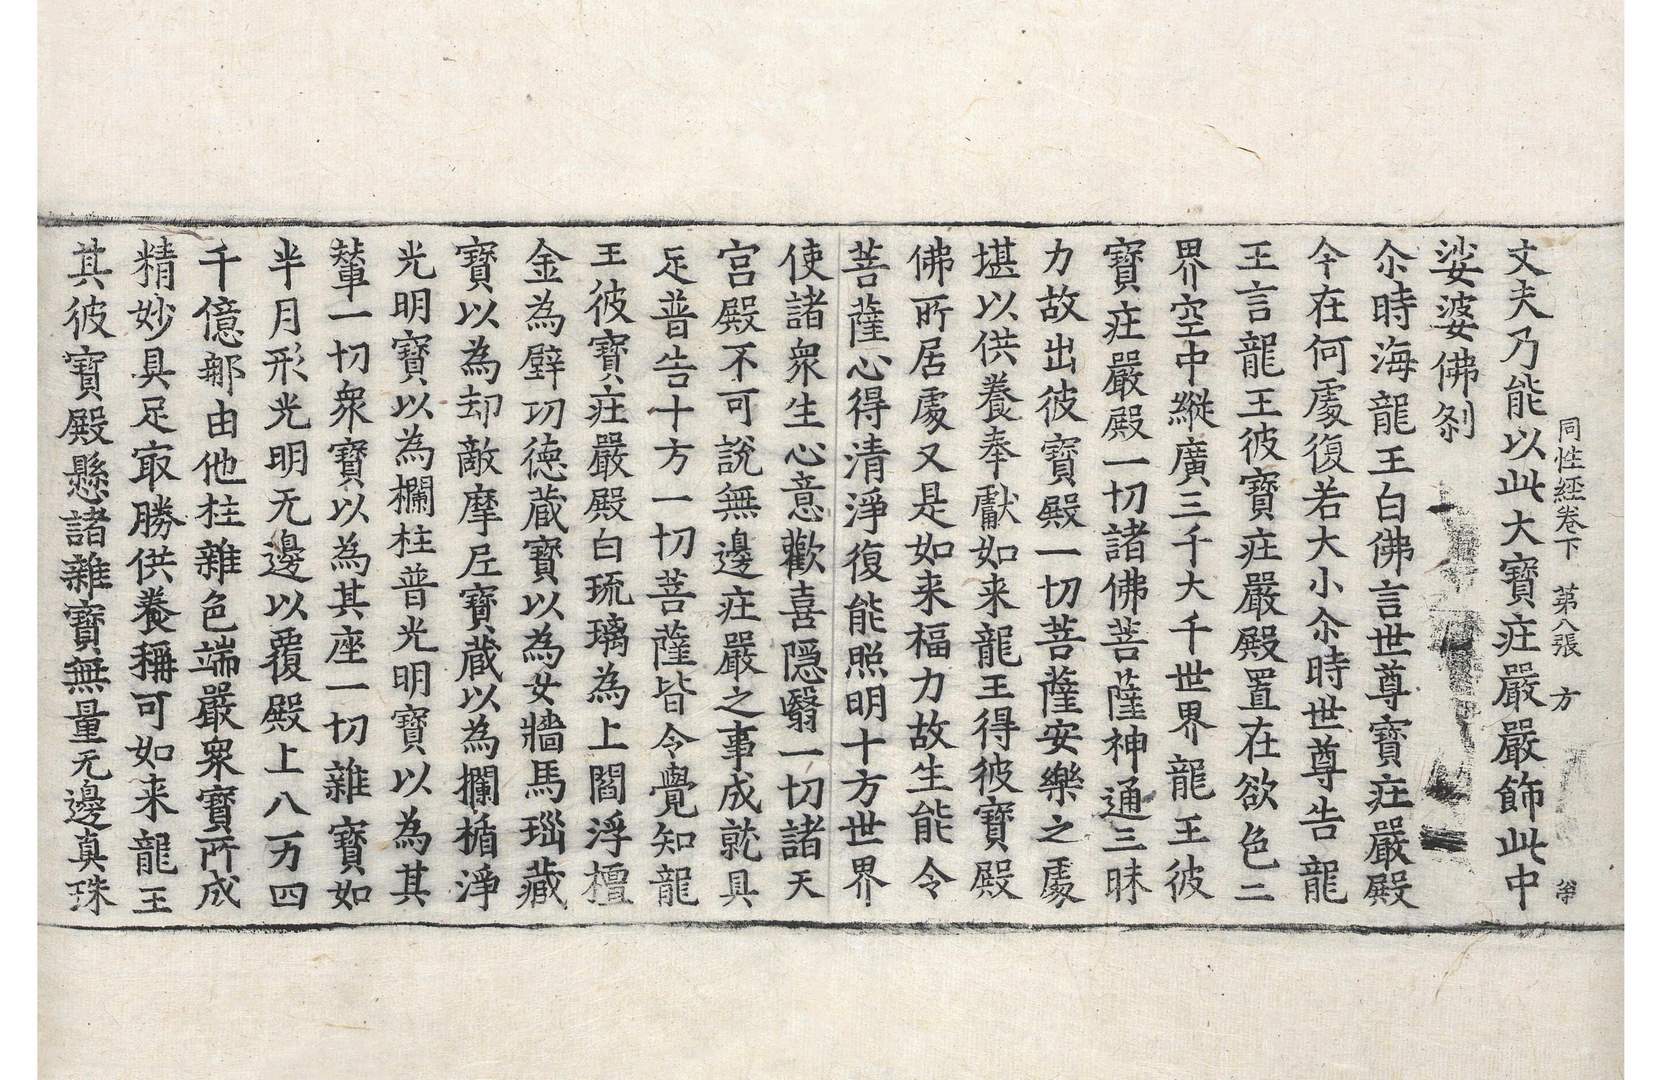 同性經卷下 第八張 方
丈夫乃能以此大寶莊嚴嚴飾此中
娑婆佛刹
尒時海龍王白佛言世尊寶莊嚴殿
今在何處復若大小尒時世尊告龍
王言龍王彼寶莊嚴殿置在欲色二
界空中縱廣三千大千世界龍王彼
寶莊嚴殿一切諸佛菩薩神通三昧
力故出彼寶殿一切菩薩安樂之處
堪以供養奉獻如来龍王得彼寶殿
佛所居處又是如来福力故生能令
菩薩心得清淨復能照明十方世界
使諸衆生心意歡喜隱翳一切諸天
宮殿不可說無邊莊嚴之事成就具
足普告十方一切菩薩皆令覺知龍
王彼寶莊嚴殿白琉璃為上閻浮檀
金為壁㓛德蔵寶以為女牆馬瑙蔵
寶以為却敵摩尼寶蔵以為攔楯淨
光明寶以為欄柱普光明寶以為其
輦一切衆寶以為其座一切雜寶如
半月形光明无邊以覆殿上八万四
千億那由他柱雜色端嚴衆寶所成
精妙具足㝡勝供養稱可如来龍王
其彼寶殿懸諸雜寶無量无邊真珠